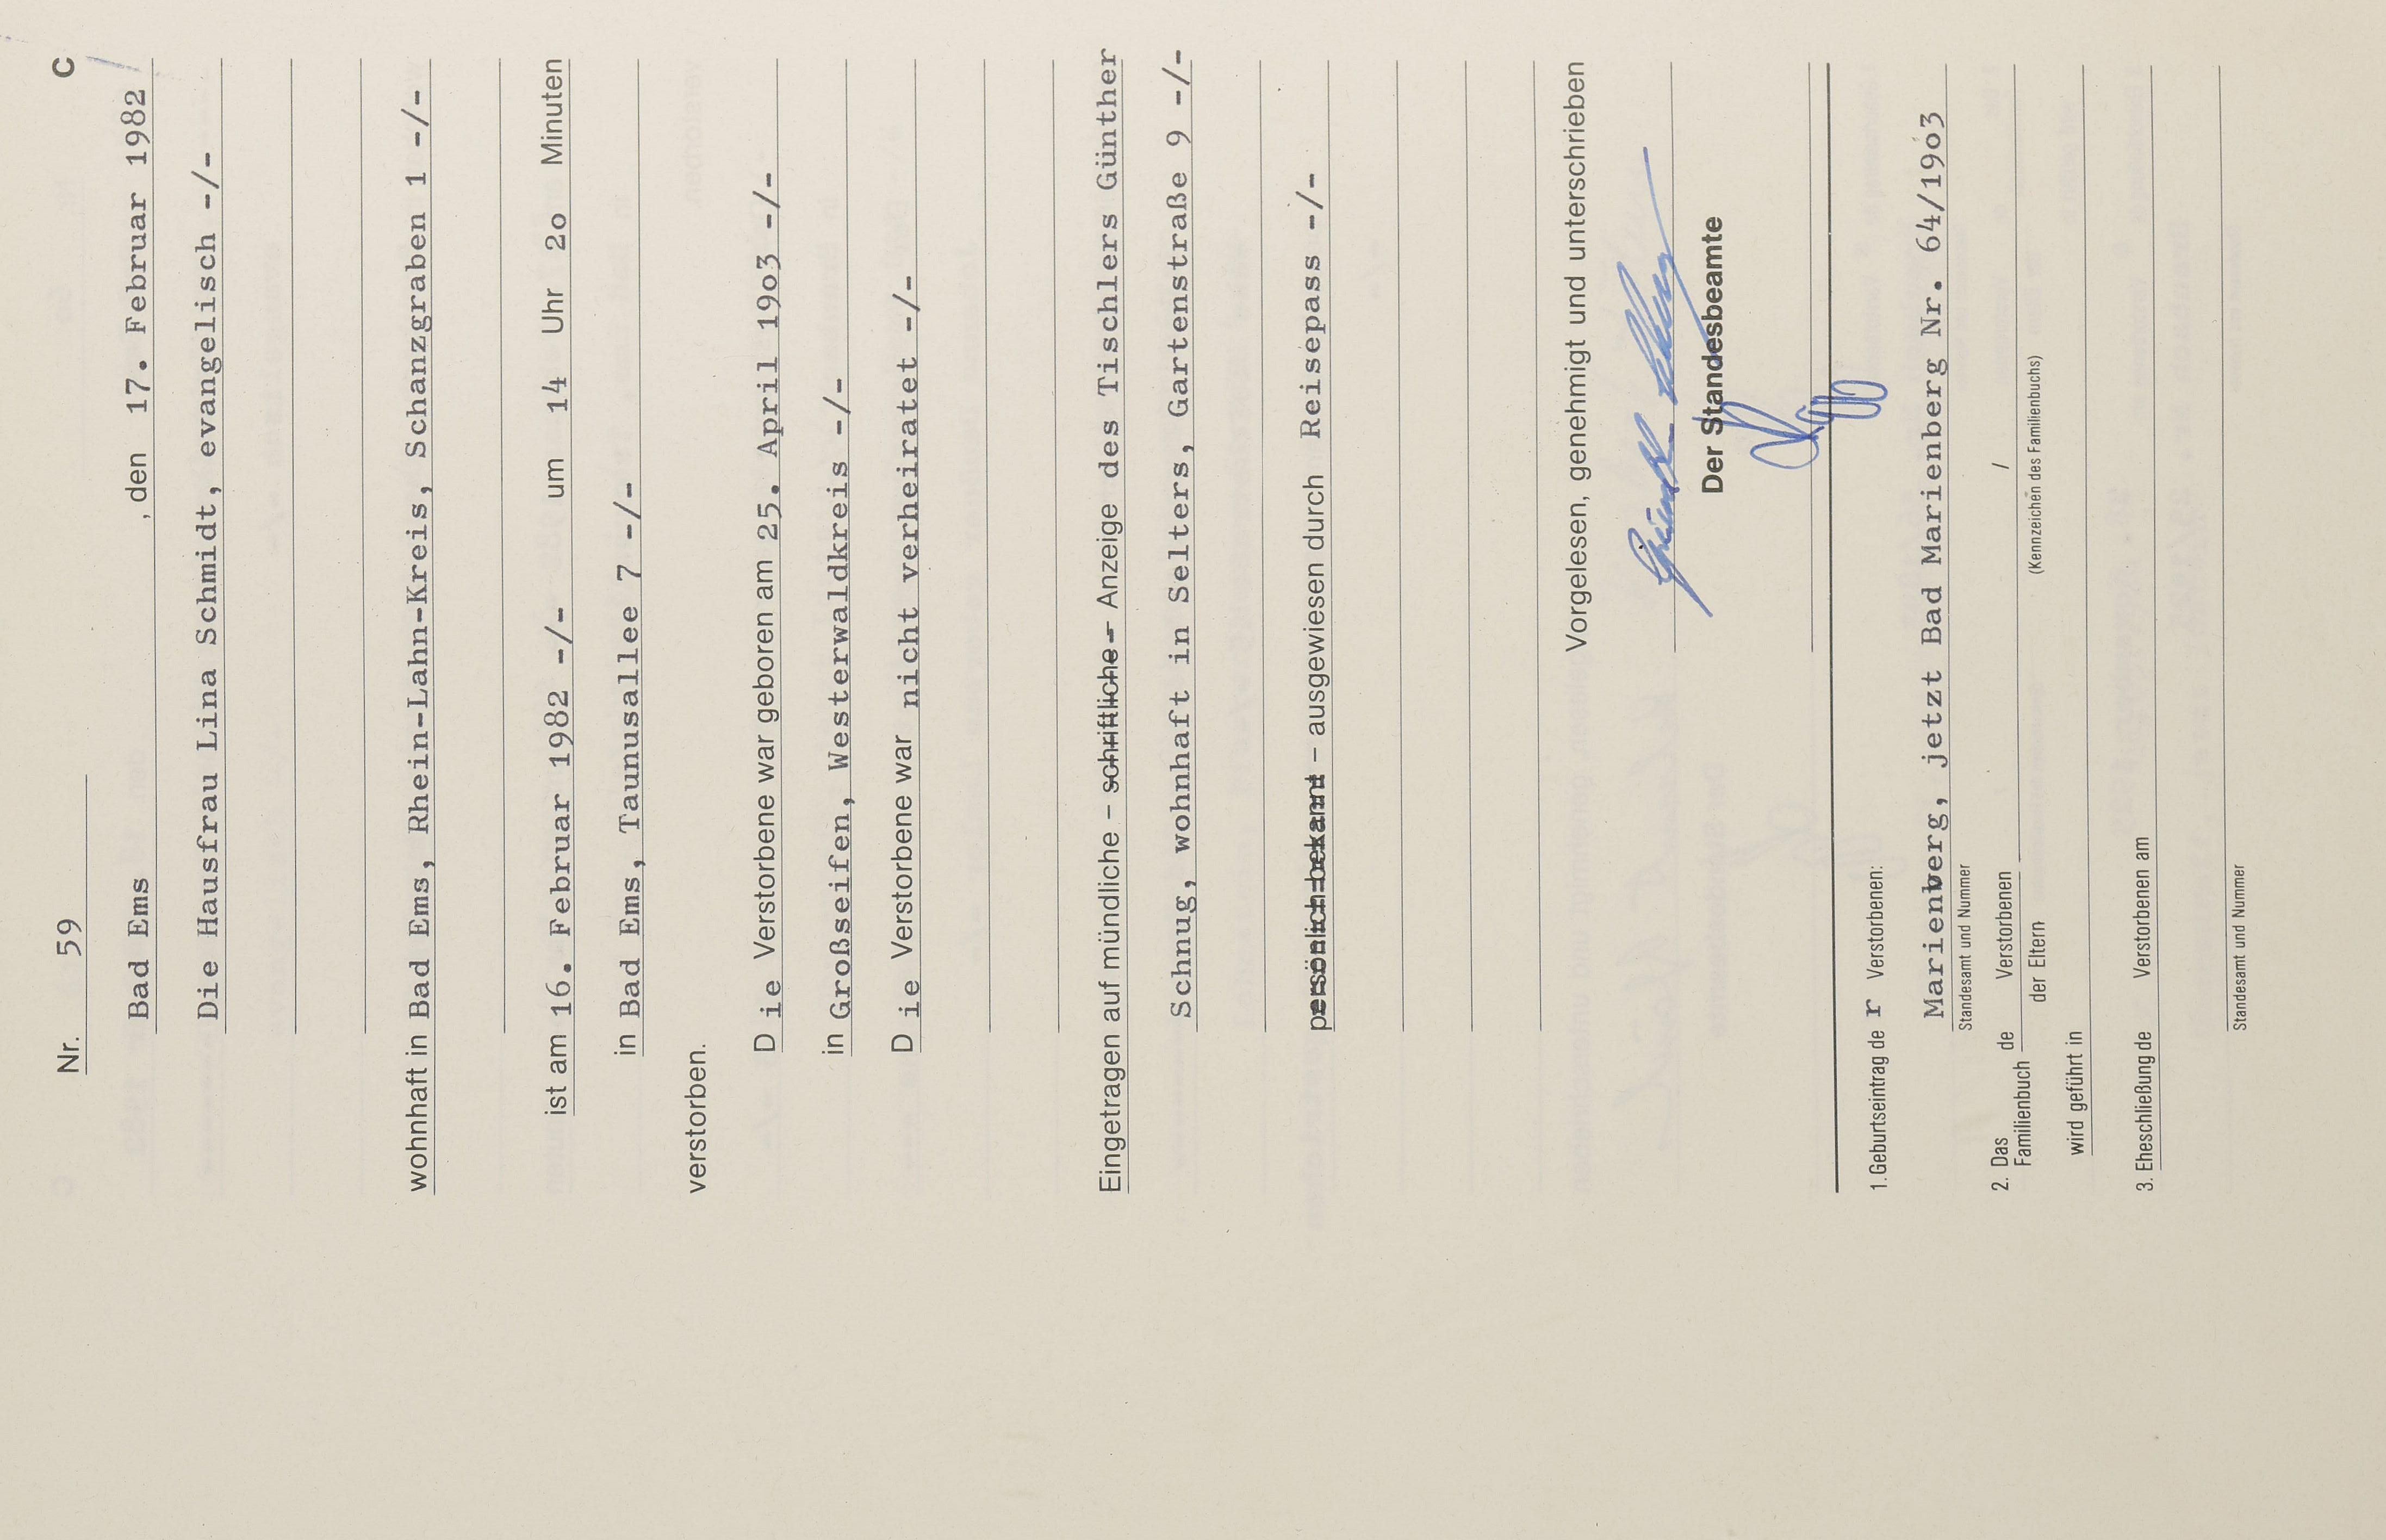 Nr. 59 C
Bad Ems , den 17. Februar 1982
Die Hausfrau Lina Schmidt, evangelisch -/-
wohnhaft in Bad Ems, Rhein-Lahn-Kreis, Schanzgraben 1 -/-
ist am 16. Februar 1982 -/- um 14 Uhr 2o Minuten
in Bad Ems, Taunusallee 7 -/-
verstorben.
D ie Verstorbene war geboren am 25. April 19o3 -/-
in Großseifen, Westerwaldkreis -/-
D ie Verstorbene war nicht verheiratet -/-
Eingetragen auf mündliche – schriftliche – Anzeige des Tischlers Günther
Schnug, wohnhaft in Selters, Gartenstraße 9 -/-
persönlich bekannt – ausgewiesen durch Reisepass -/-
Vorgelesen, genehmigt und unterschrieben
Der Standesbeamte
1. Geburtseintrag de r Verstorbenen:
Marienberg, jetzt Bad Marienberg Nr. 64/19o3
Standesamt und Nummer
2. Das Familienbuch de Verstorbenen /
der Eltern (Kennzeichen des Familienbuchs)
wird geführt in
3. Eheschließung de Verstorbenen am
Standesamt und Nummer